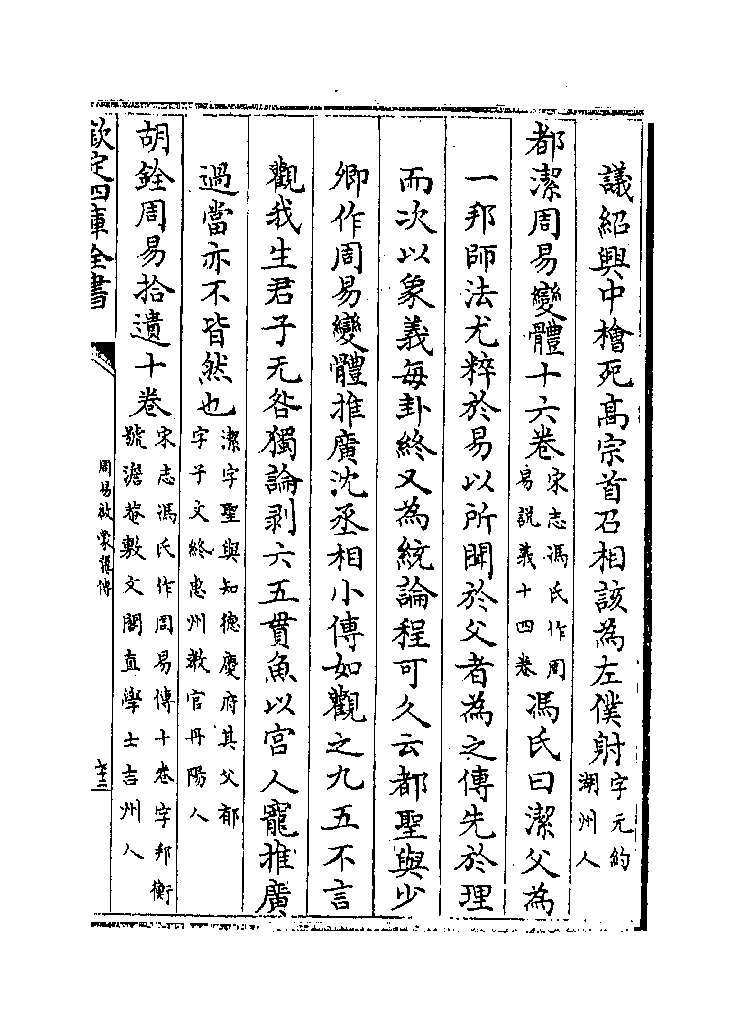 議紹興中檜死高宗首召相該為左僕射字元約湖州人
都潔周易變體十六卷宋志馮氏作周易説義十四卷馮氏曰潔父為
一邦師法尤粹於易以所聞於父者為之傳先於理
而次以象義每卦終又為統論程可久云都聖與少
卿作周易變體推廣沈丞相小傳如觀之九五不言
觀我生君子无咎獨論剥六五貫魚以宫人寵推廣
過當亦不皆然也潔字聖與知德慶府其父郁字子文終惠州教官丹陽人
胡銓周易拾遺十卷宋志馮氏作周易傳十卷字邦衡號澹菴敷文閣直學士吉州人
欽定四庫全書
周易啟蒙翼傳